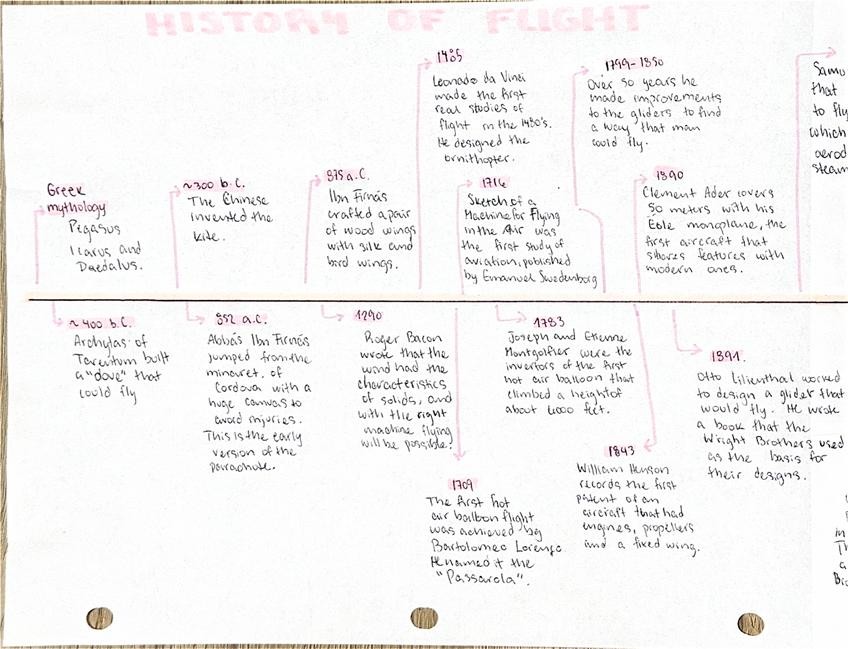 HISTORY OF FLIGHT
Greek
mythology
Pegasus
Icarus and
Daedalus.
~300 b.C.
The Chinese
invented the
kite.
875 a.C.
Ibn Firnás
crafted a pair
of wood wings
with silk and
bird wings.
1485
Leonado da Vinci
made the first
real studies of
flight in the 1480's.
He designed the
ornithopter.
1716
Sketch of a
Machine for Flying
in the Air was
the first study of
aviation, published
by Emanuel Swedenborg
1799-1850
Over 50 years he
made improvements
to the gliders to find
a way that man
could fly.
1890
Clement Ader covers
50 meters with his
Éole monoplane, the
first aircraft that
shares features with
modern ones.
Samu
that
to fly
which
aerod
steam
~400 b.C.
Archytas of
Tarentum built
a "dove" that
could fly
852 a.C.
Abbás Ibn Firnás
jumped from the
minaret of
Cordova with a
huge canvas to
avoid injuries.
This is the early
version of the
parachute.
1290
Roger Bacon
wrote that the
wind had the
characteristics
of solids, and
with the right
machine flying
will be possible.
1709
The first hot
air balloon flight
was achieved by
Bartolomeo Lorenzo
He named it the
"Passarola".
1783
Joseph and Etienne
Montgolfier were the
inventors of the first
hot air balloon that
climbed a height of
about 6,000 feet.
1843
William Henson
records the first
patent of an
aircraft that had
engines, propellers
and a fixed wing.
1891.
Otto Lilienthal worked
to design a glider that
would fly. He wrote
a book that the
Wright Brothers used
as the basis for
their designs.
in
Th
a
Bi